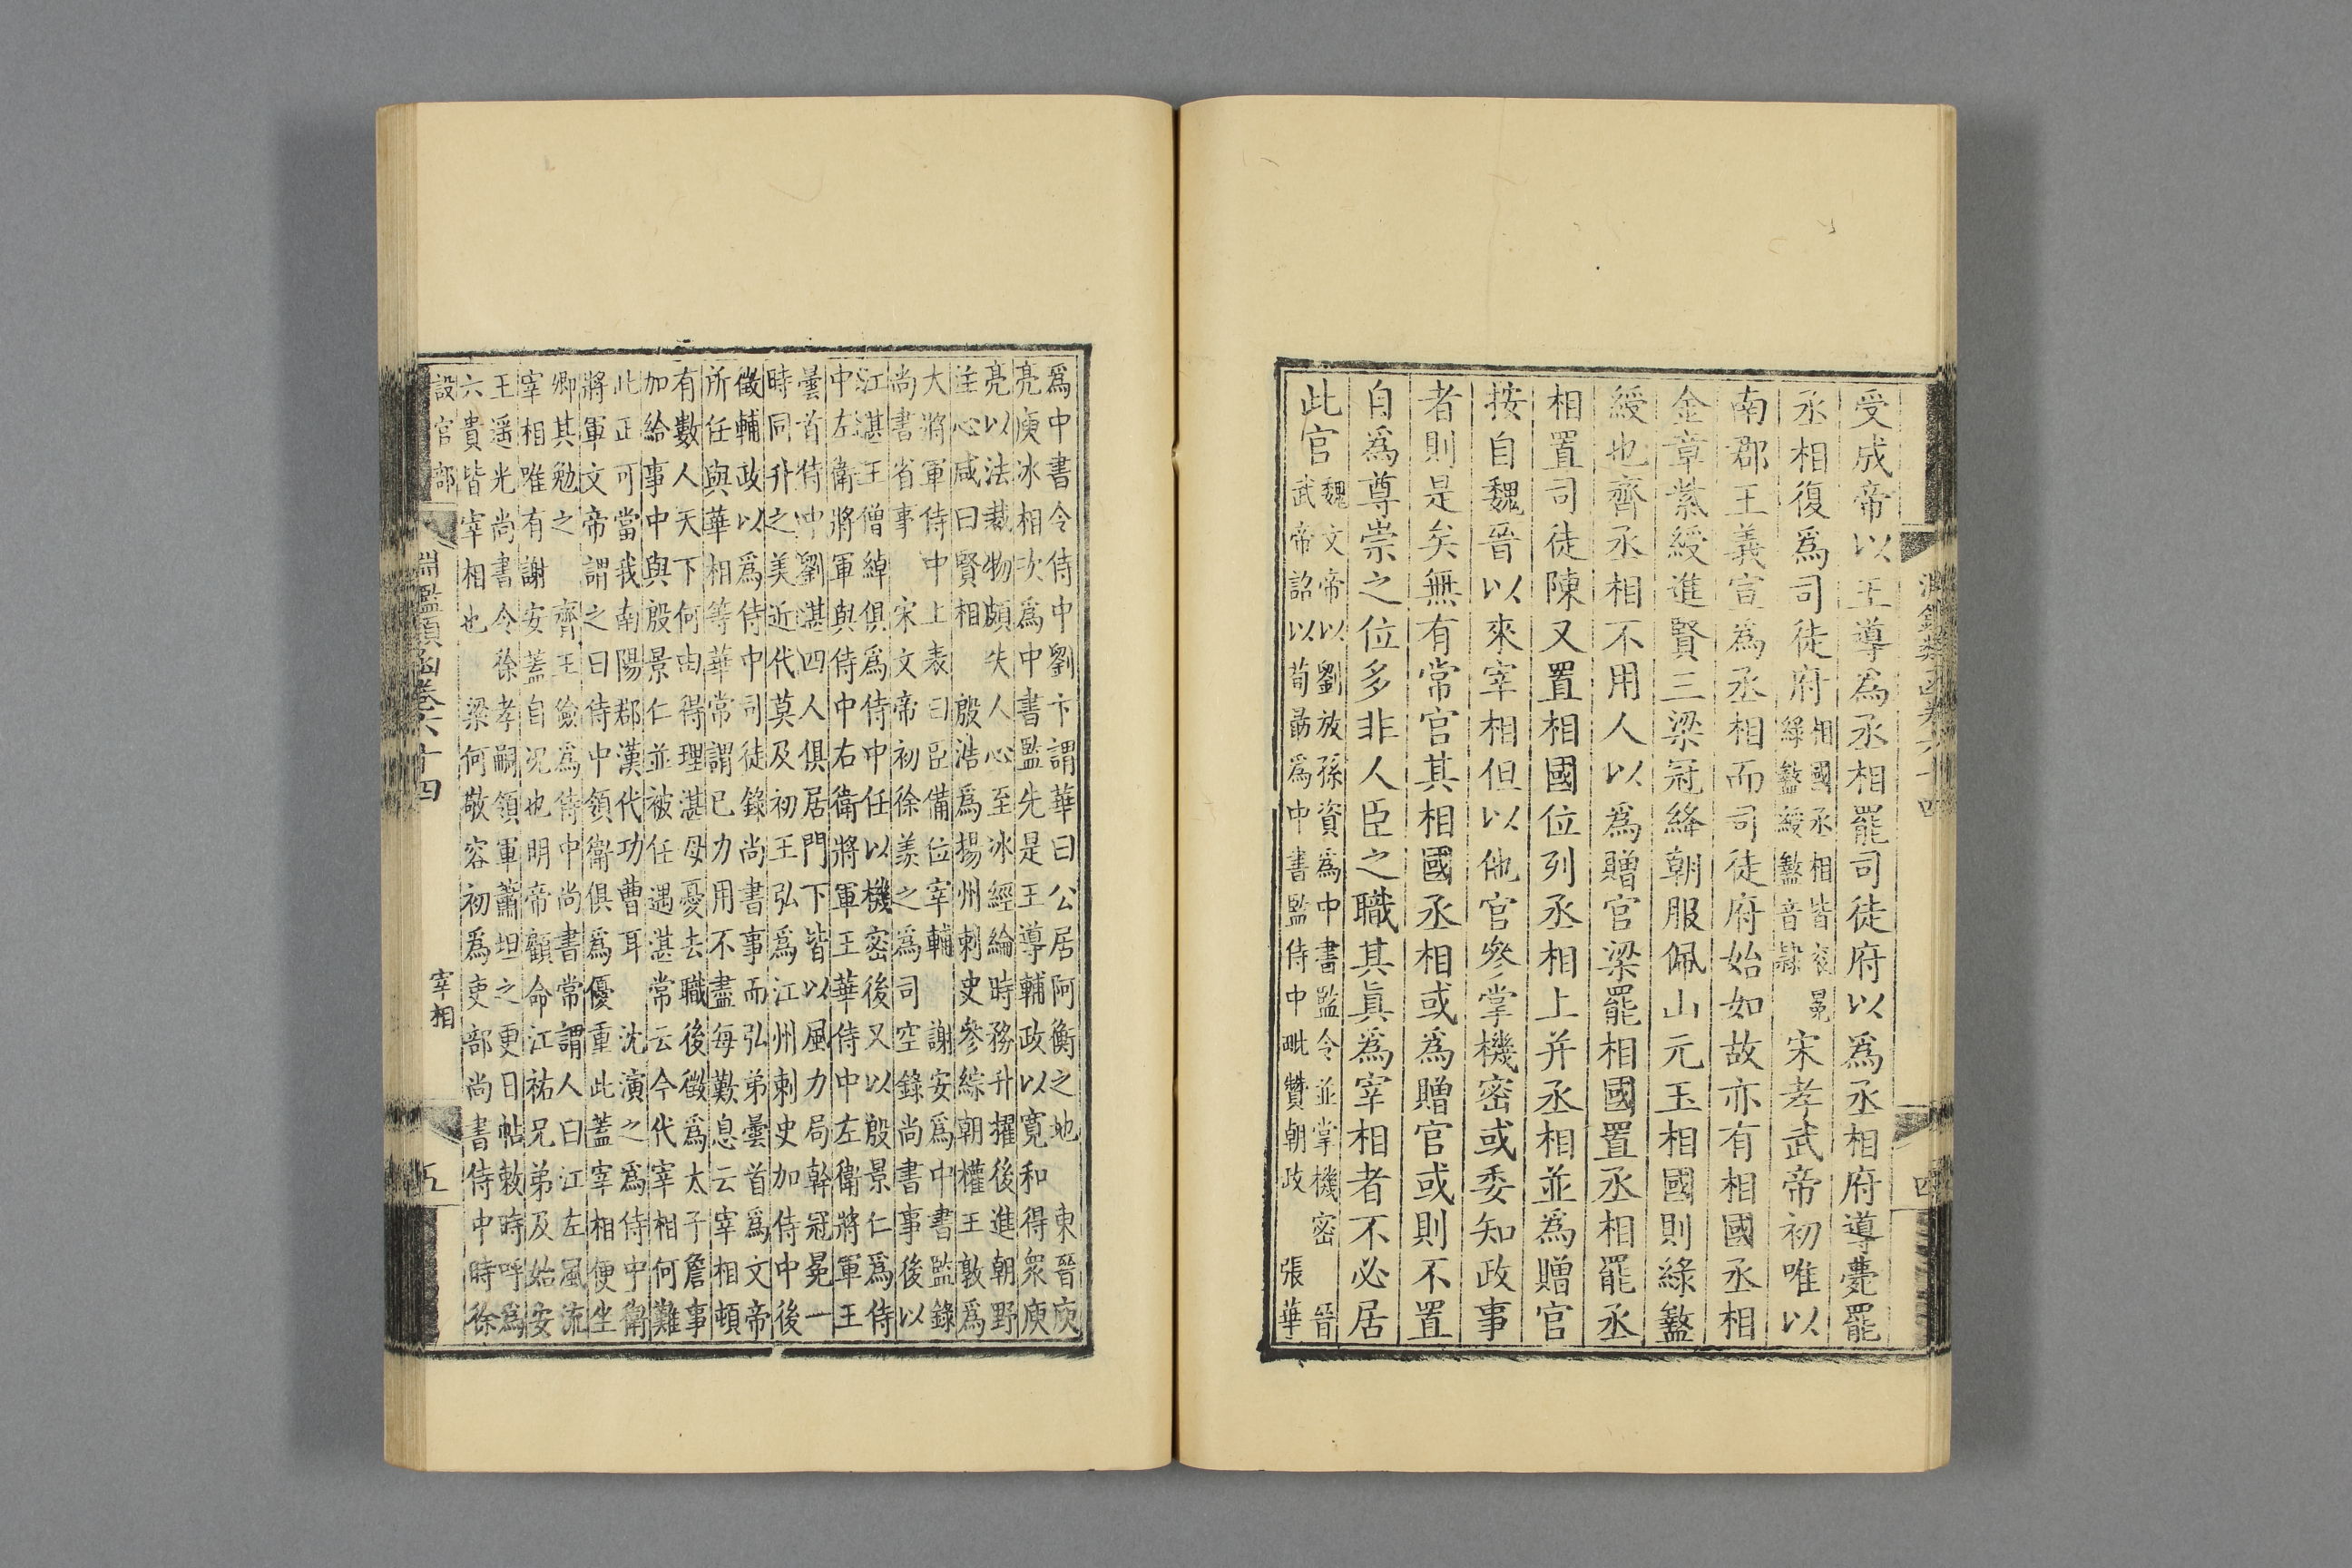 受成帝以王導爲丞相罷司徒府以爲丞相府導薨罷
丞相復爲司徒府
相國丞相皆衮冕
綠盭綬盭音隷
宋孝武帝初唯以
南郡王義宣爲丞相而司徒府始如故亦有相國丞相
金章紫綬進賢三梁冠絳朝服佩山元玉相國則綠盭
綬也齊丞相不用人以爲贈官梁罷相國置丞相罷丞
相置司徒陳又置相國位列丞相上并丞相並爲贈官
按自魏晉以來宰相但以他官參掌機密或委知政事
者則是矣無有常官其相國丞相或爲贈官或則不置
自爲尊崇之位多非人臣之職其眞爲宰相者不必居
此官
魏文帝以劉放孫資爲中書監令並掌機密 晉
武帝詔以荀勗爲中書監侍中毗贊朝政 張華
淵鑑類函卷六十四
四
爲中書令侍中劉卞謂華曰公居阿衡之地 東晉庾
亮庾冰相次爲中書監先是王導輔政以寬和得衆庾
亮以法裁物頗失人心至冰經綸時務升擢後進朝野
注心咸曰賢相 殷浩爲揚州刺史參綜朝權王敦爲
大將軍侍中上表曰臣備位宰輔 謝安爲中書監錄
尚書省事 宋文帝初徐羨之爲司空錄尚書事後以
江湛王僧綽俱爲侍中任以機密後又以殷景仁爲侍
中左衛將軍與侍中右衛將軍王華侍中左衛將軍王
曇首侍中劉湛四人俱居門下皆以風力局幹冠冕一
時同升之美近代莫及初王弘爲江州刺史加侍中後
徵輔政以爲侍中司徒錄尚書事而弘弟曇首爲文帝
所任與華相等華常謂已力用不盡每歎息云宰相頓
有數人天下何由得理湛母憂去職後徵爲太子詹事
加給事中與殷景仁並被任遇湛常云今代宰相何難
此正可當我南陽郡漢代功曹耳 沈演之爲侍中衛
將軍文帝謂之曰侍中領衛俱爲優重此蓋宰相便坐
卿其勉之 齊王儉爲侍中尚書常謂人曰江左風流
宰相唯有謝安蓋自况也明帝顧命江祐兄弟及始安
王遥光尚書令徐孝嗣領軍蕭坦之更日帖敕時呼爲
六貴皆宰相也 梁何敬容初爲吏部尚書侍中時徐
設官部
宰相
淵鑑類函卷六十四
五